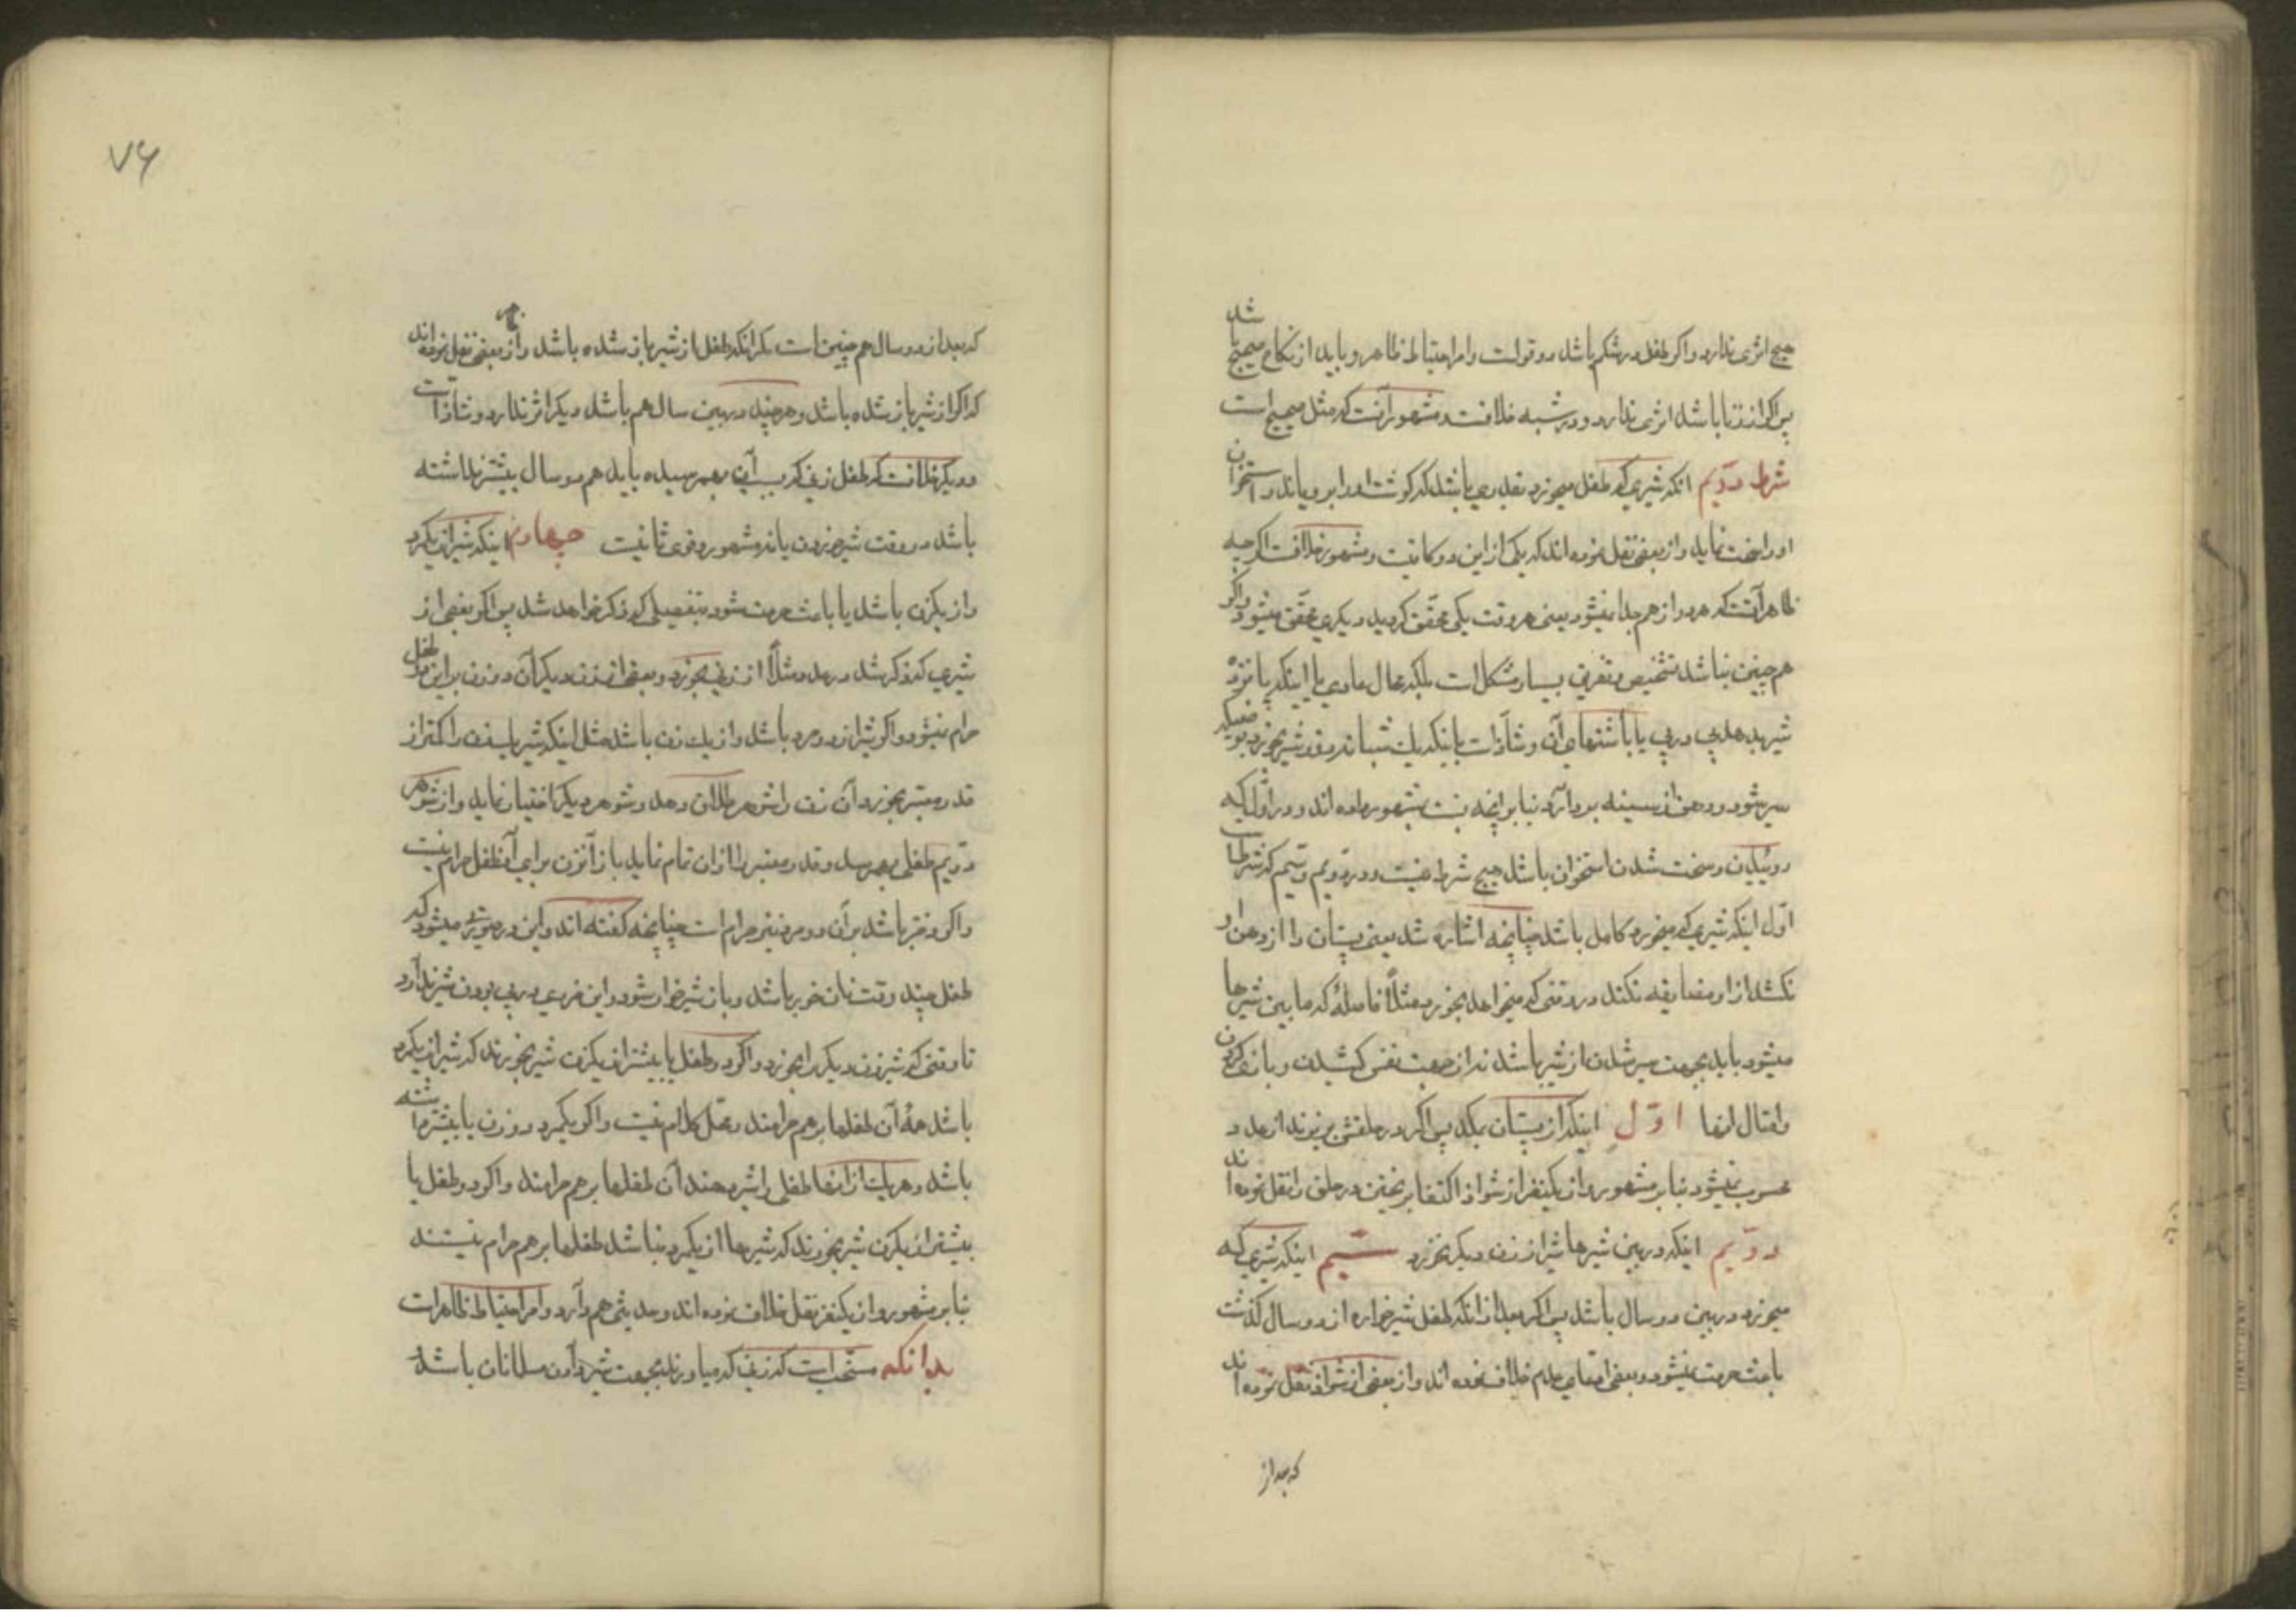 هیچ اثری ندارد واکر طفل در شکم باشد دو قولست وامر احتیاط ظاهر و باید از نکاح صحیح باشد
پس اکر از زنا باشد اثری ندارد و در شبه خلافست و مشهور آنست که مثل صحیح است
شرط دویم انکه شیری که طفل میخورد بقدری باشد که کوشت او را برویاند و استخوان
او را سخت نماید و از بعضی نقل نموده اند که یکی از این دو کافیست و مشهور خلافست اکرچه
ظاهر آنست که هر دو از هم جدا نمیشود یعنی هر وقت یکی محقق کردید دیکری محقق میشود واکر
هم چنین نباشد تشخیص و تفریق بسیار مشکل است بلکه محال عادی یا اینکه پانزده
شیر بدهد پی در پی یا باشتهای آن و شاذ است یا اینکه یک شبانه روز شیر بخورد بنوعیکه
سیر شود و دهن از سینه بردارد بنا بر انچه نسبت بمشهور داده اند و در اول که
روئیدن و سخت شدن استخوان باشد هیچ شرط نیست و در دویم و سیم که شرط است
اول اینکه شیری که میخورد کامل باشد چنانچه اشاره شد یعنی پستان را از دهن او
نکشد از او مضایقه نکند در وقتی که میخواهد بخورد مثلاً فاصلهٔ که مابین شیرها
میشود باید بجهت سیر شدن از شیر باشد نه از جهت نفس کشیدن و بازی کردن
و امثال انها اول اینکه از پستان بمکد پس اکر در حلقش بریزند از عدد
محسوب نمیشود بنا بر مشهور و از یکنفر از شواذ اکتفا بریختن در حلق را نقل نموده اند
دویم اینکه در بین شیرها شیر از زن دیکر نخورد سیم اینکه شیری که
میخورد در بین دو سال باشد پس اکر بعد از انکه طفل شیر خواره از دو سال کذشت
باعث حرمت نمیشود و بعضی ادعای عدم خلاف نموده اند و از بعضی از شواذ نقل نموده اند
که بعد از
۷۶
که بعد از دو سال هم چنین است مکر انکه طفل از شیر باز شده باشد و از بعضی نقل نموده اند
که اکر از شیر باز شده باشد و هر چند در بین سال هم باشد دیکر اثر ندارد و شاذ است
و دیکر خلافست که طفل زنی که بسبب آن شیر بهمرسیده باید هم دو سال بیشتر نداشته
باشد در وقت شیر خوردن یا نه مشهور و قوی ثانیست چهارم اینکه شیر از یکمرد
و از یکزن باشد یا باعث حرمت شود بتفصیلی که ذکر خواهد شد پس اکر بعضی از
شیری که ذکر شد در عدد مثلاً از زنی بخورد و بعضی از زن دیکر آن دو زن بر این طفل
حرام نمیشود و اکر شیر از دو مرد باشد و از یک زن باشد مثل اینکه شیر یک زن را کمتر از
قدر معتبر بخورد آن زن را شوهر طلاق دهد و شوهر دیکر اختیار نماید و از شوهر
دویم طفلی بهمرسد و قدر معتبر را از آن تمام نماید باز آنزن برای آنطفل حرام نیست
واکر دختر باشد بر آن دو مرد نیز حرام است چنانچه کفته اند و این در صورتی میشود که
طفل چند وقت نان خور باشد و باز شیر خوار شود و این ضرری در پی بودن شیر ندارد
تا وقتی که شیر زن دیکر را نخورد و اکر دو طفل یا بیشتر از یکزن شیر بخورند که شیر از یکمرد
باشد همهٔ آن طفلها بر هم حرامند و محل کلام نیست و اکر یکمرد دو زن یا بیشتر داشته
باشد و هر یک از انها طفلی را شیر دهند آن طفلها بر هم حرامند و اکر دو طفل یا
بیشتر از یکزن شیر بخورند که شیرها از یکمرد نباشد طفلها بر هم حرام نیستند
بنا بر مشهور و از یکنفر نقل خلاف نموده اند و حدیثی هم دارد و امر احتیاط ظاهر است
بدانکه مستحب است که زنی که میاورند بجهت شیر دادن مسلمانان باشد